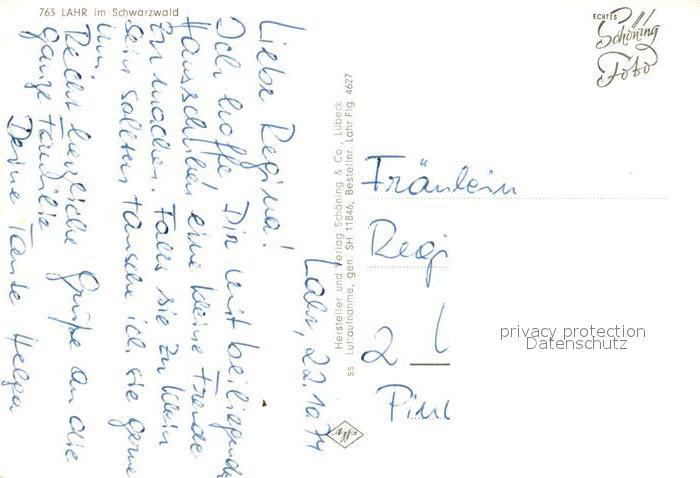 763 LAHR im Schwarzwald
ECHTES
Schöning
Foto
Lahr, 22.10.74
Liebe Regina!
Ich hoffe Dir mit beiliegenden
Hausschuhen eine kleine Freude
zu machen. Falls sie zu klein
sein sollten, tausche ich sie gerne
um.
Recht herzliche Grüße an die
ganze Familie
Deine Tante Helga
Hersteller und Verlag Schöning & Co., Lübeck
ss Luftaufnahme, gen. SH 11846, Bestellnr. Lahr Flg. 4627
Fräulein
Regi
2
Pin
privacy protection
Datenschutz